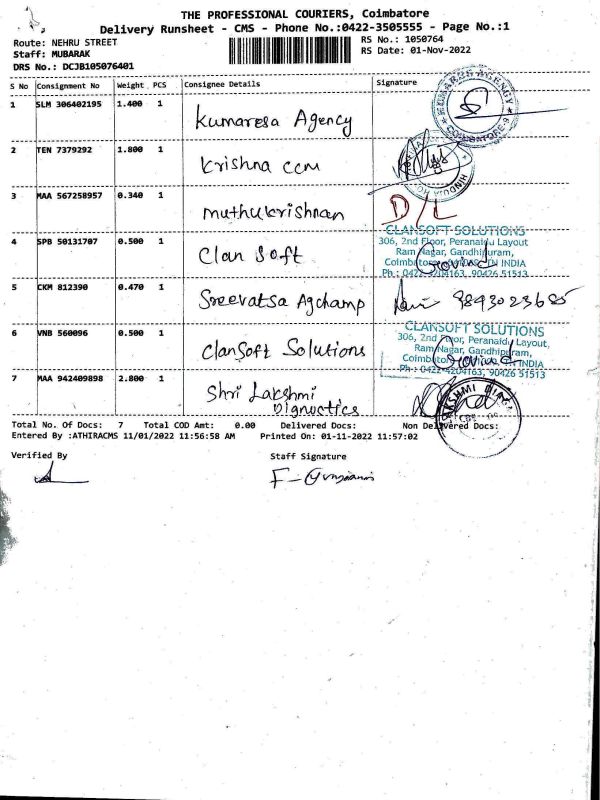 THE PROFESSIONAL COURIERS, Coimbatore
Delivery Runsheet - CMS - Phone No.:0422-3505555 - Page No.:1
Route: NEHRU STREET
RS No.: 1050764
Staff: MUBARAK
RS Date: 01-Nov-2022
DRS No.: DCJB105076401
S No Consignment No Weight PCS Consignee Details Signature
1 SLM 306402195 1.400 1 Kumaresa Agency
KUMARESA AGENCY COIMBATORE-9
2 TEN 7379292 1.800 1 Krishna CCM
3 MAA 567258957 0.340 1 Muthukrishnan D/L
4 SPB 50131707 0.500 1 Clan Soft
CLANSOFT SOLUTIONS
306, 2nd Floor, Peranaidu Layout
Ram Nagar, Gandhipuram,
Govind
Ph : 0422 4204163, 90426 51513
5 CKM 812390 0.470 1 Sreevatsa Agchamp
6 VNB 560096 0.500 1 ClanSoft Solutions
CLANSOFT SOLUTIONS
306, 2nd Floor, Peranaidu Layout,
Ram Nagar, Gandhipuram,
Govind
Ph : 0422 4204163, 90426 51513
7 MAA 942409898 2.800 1 Shri Lakshmi
Dignostics
Total No. Of Docs: 7 Total COD Amt: 0.00 Delivered Docs: Non Delivered Docs:
Entered By :ATHIRACMS 11/01/2022 11:56:58 AM Printed On: 01-11-2022 11:57:02
Verified By Staff Signature